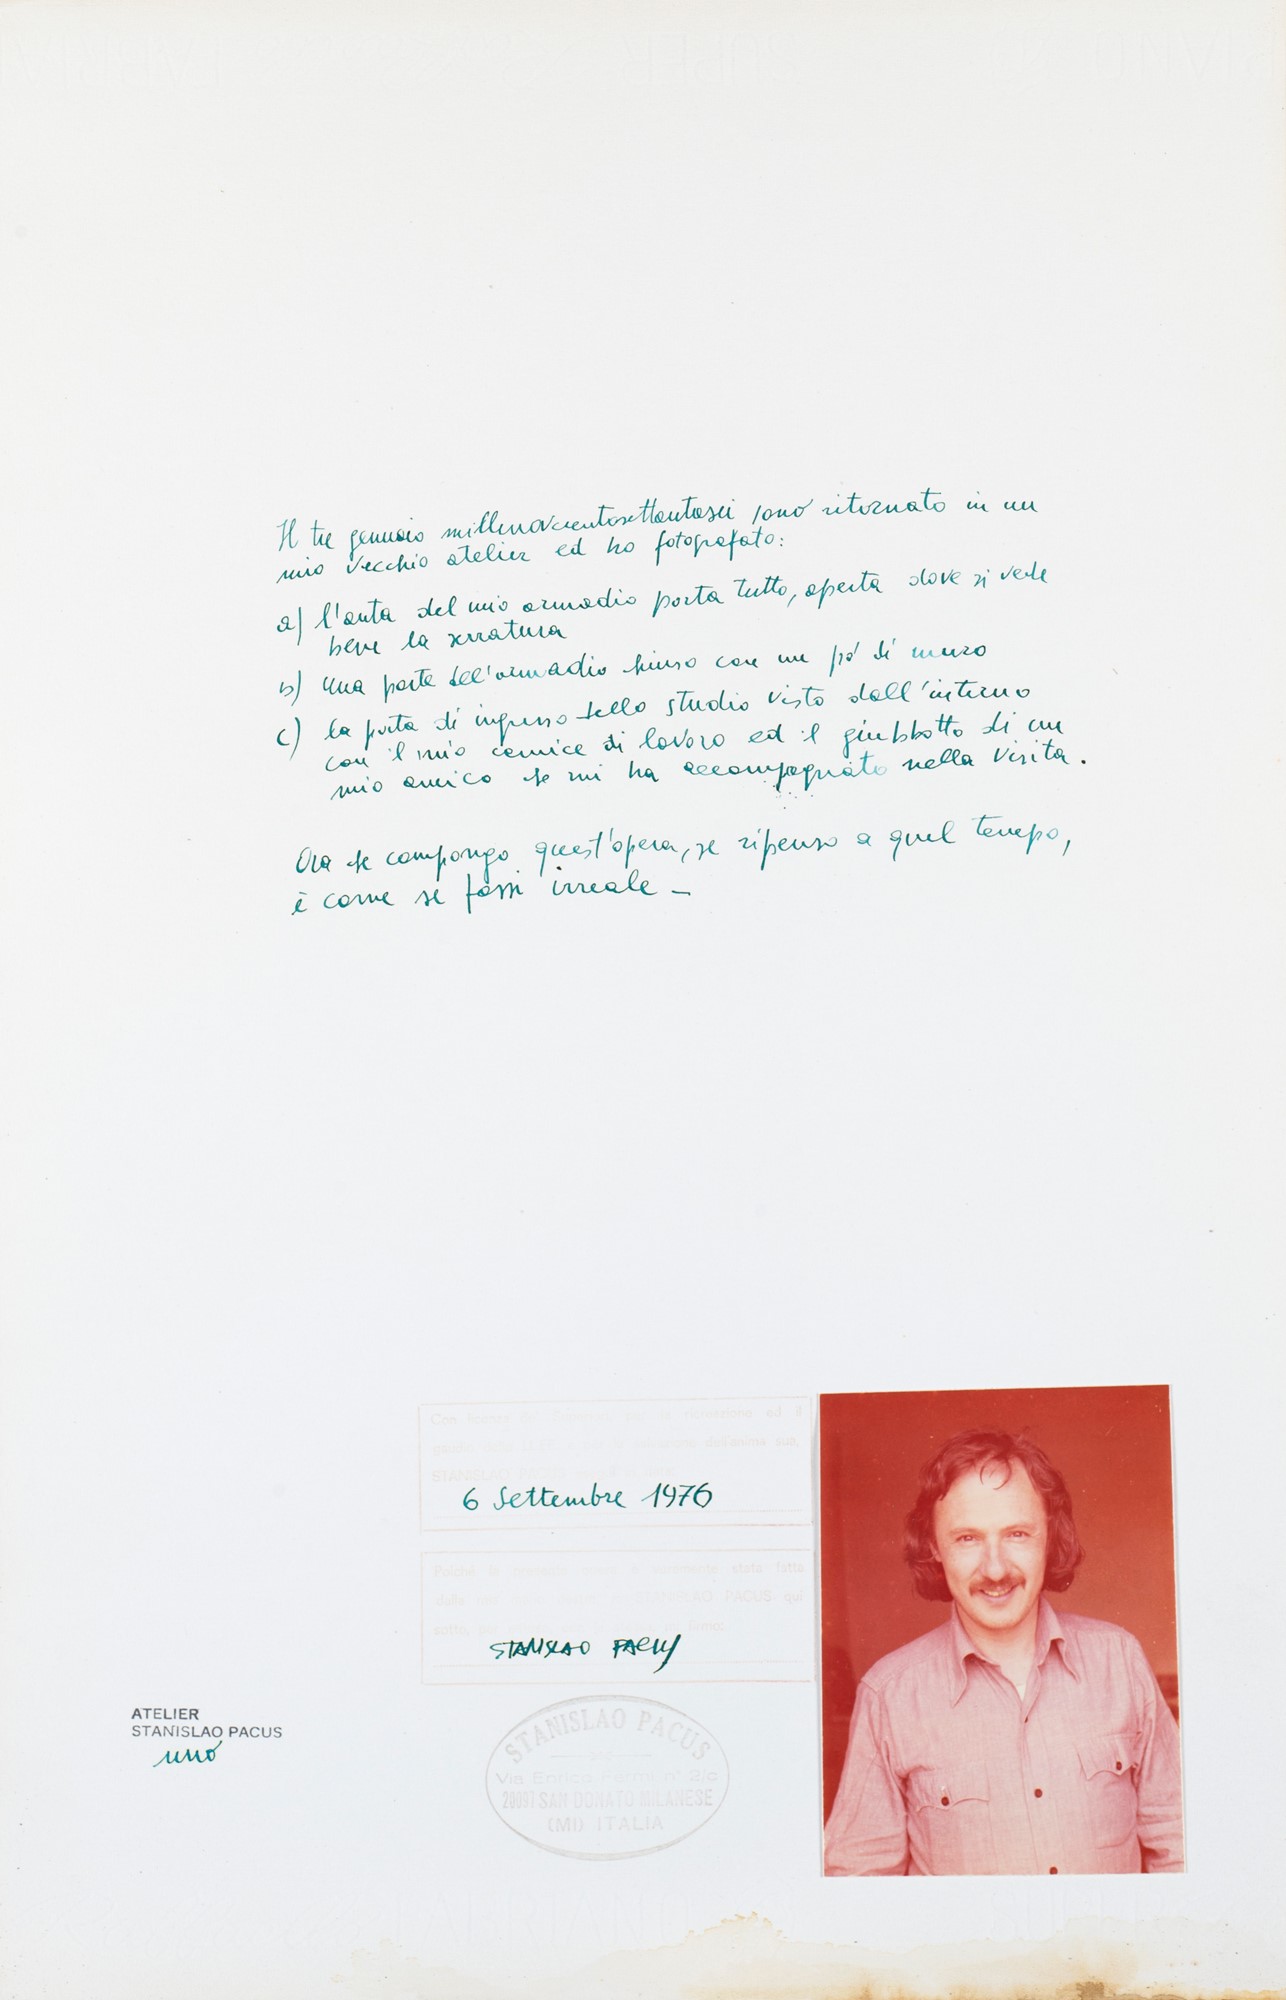 Il tre gennaio millenovecentosettantasei sono ritornato in un
mio vecchio atelier ed ho fotografato:
a) l'anta del mio armadio porta tutto, aperta dove si vede
bene la serratura
b) una parte dell'armadio chiuso con un pó di muro
c) la porta di ingresso dello studio visto dall'interno
con il mio camice di lavoro ed il giubbotto di un
mio amico che mi ha accompagnato nella visita.
Ora che compongo quest'opera, se ripenso a quel tempo,
è come se fossi irreale –
ricreazione ed il
dell'anima sua,
STANISLAO PACUS
6 Settembre 1976
Poiché la presente opera è veramente stata fatta
dalla STANISLAO PACUS qui
sotto,
STANISLAO PACUS
ATELIER
STANISLAO PACUS
uno
STANISLAO PACUS
Via Enrico Fermi n° 2/c
20097 SAN DONATO MILANESE
(MI) ITALIA